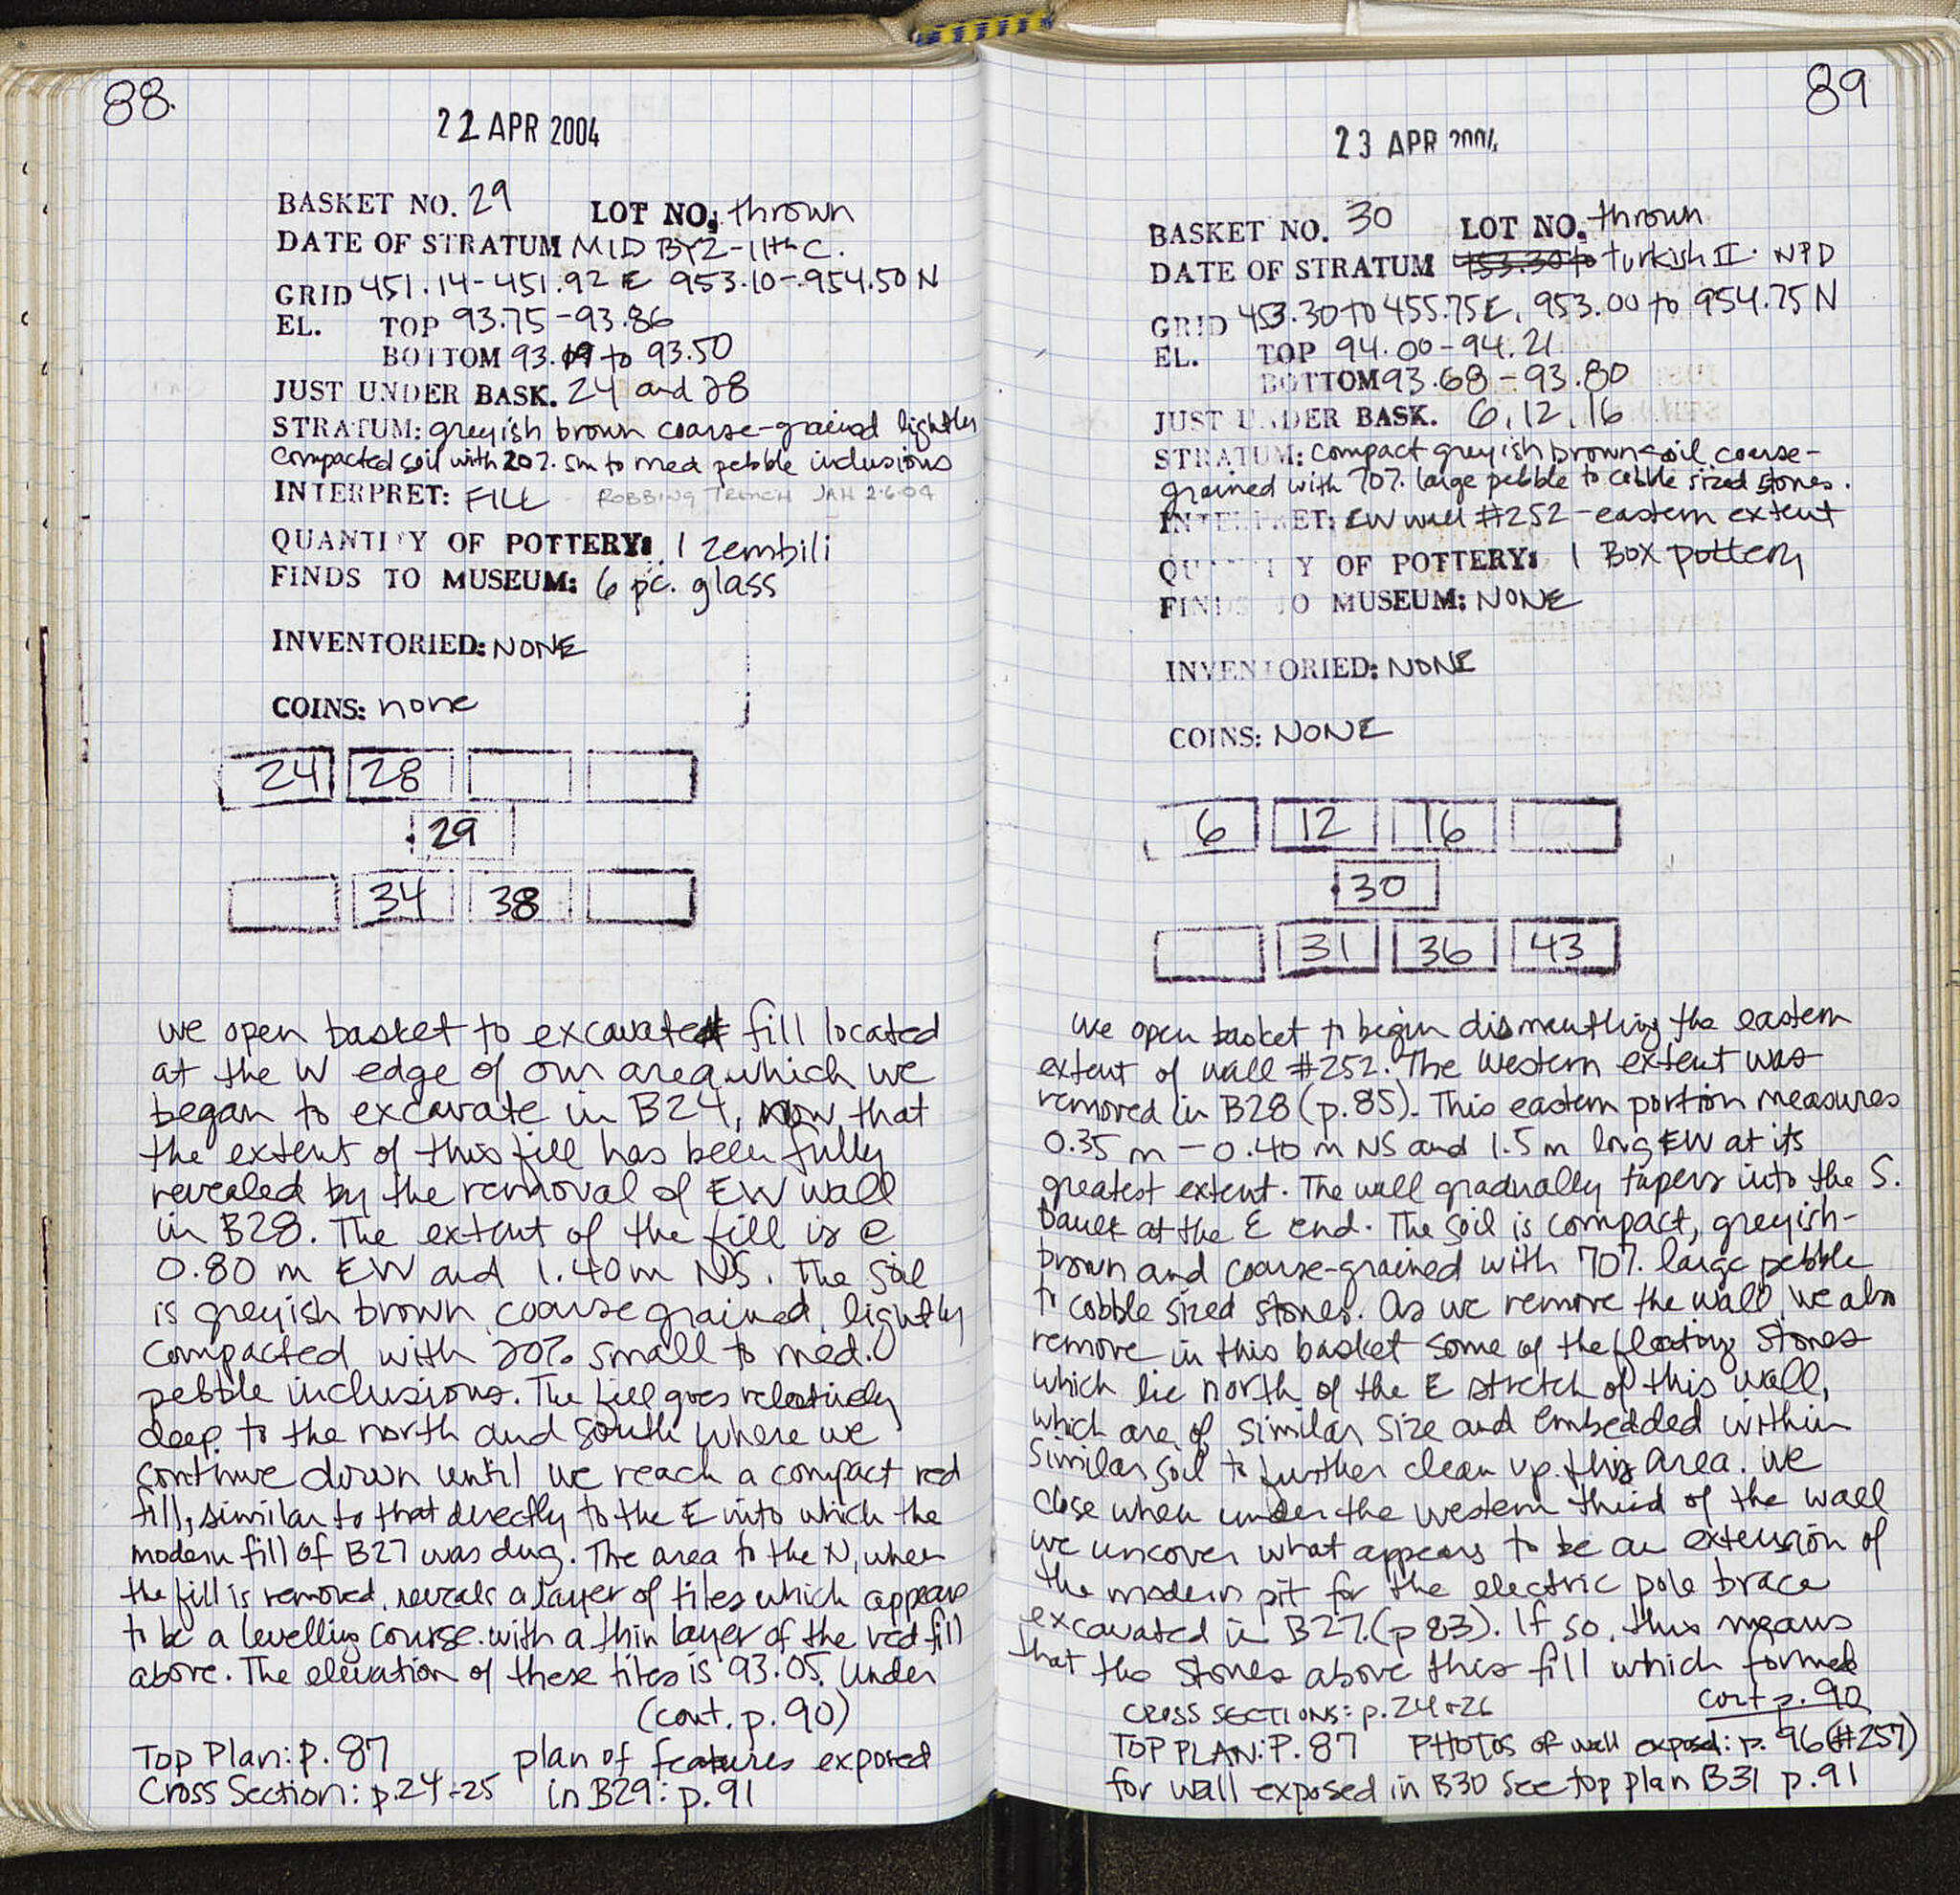 88.
22 APR 2004
BASKET NO. 29 LOT NO. thrown
DATE OF STRATUM MID BYZ-11th C.
GRID 451.14-451.92 E 953.10-954.50 N
EL. TOP 93.75-93.86
BOTTOM 93.19 to 93.50
JUST UNDER BASK. 24 and 28
STRATUM: greyish brown coarse-grained lightly
compacted soil with 20% sm to med pebble inclusions
INTERPRET: FILL - ROBBING TRENCH JAH 2.6.04
QUANTITY OF POTTERY: 1 zembili
FINDS TO MUSEUM: 6 pc. glass
INVENTORIED: NONE
COINS: none
24 28
29
34 38
we open basket to excavate fill located
at the W edge of our area which we
began to excavate in B24, now that
the extent of this fill has been fully
revealed by the removal of EW wall
in B28. The extent of the fill is @
0.80 m EW and 1.40m NS. The soil
is greyish brown, coarse grained, lightly
compacted with 20% small to med.
pebble inclusions. The fill goes relatively
deep to the north and south where we
continue down until we reach a compact red
fill, similar to that directly to the E into which the
modern fill of B27 was dug. The area to the N, when
the fill is removed, reveals a layer of tiles which appears
to be a levelling course with a thin layer of the red fill
above. The elevation of these tiles is 93.05. Under
(cont. p. 90)
Top Plan: p. 87 plan of features exposed
Cross Section: p.24-25 in B29: p. 91
89
23 APR 2004
BASKET NO. 30 LOT NO. thrown
DATE OF STRATUM 453.30 to turkish II. NPD
GRID 453.30 to 455.75 E, 953.00 to 954.75 N
EL. TOP 94.00-94.21
BOTTOM 93.68-93.80
JUST UNDER BASK. 6, 12, 16
STRATUM: compact greyish brown soil coarse-
grained with 70% large pebble to cobble sized stones.
INTERPRET: EW wall #252 - eastern extent
QUANTITY OF POTTERY: 1 BOX pottery
FINDS TO MUSEUM: NONE
INVENTORIED: NONE
COINS: NONE
6 12 16
30
31 36 43
we open basket to begin dismantling the eastern
extent of wall #252. The western extent was
removed in B28 (p.85). This eastern portion measures
0.35 m - 0.40 m NS and 1.5 m long EW at its
greatest extent. The wall gradually tapers into the S.
baulk at the E end. The soil is compact, greyish-
brown and coarse-grained with 70% large pebble
to cobble sized stones. As we remove the wall, we also
remove in this basket some of the floating stones
which lie north of the E stretch of this wall,
which are of similar size and embedded within
similar soil to further clean up this area. We
close when under the western third of the wall
we uncover what appears to be an extension of
the modern pit for the electric pole brace
excavated in B27 (p 83). If so, this means
that the stones above this fill which formed
cont p. 90
CROSS SECTIONS: p.24+26
TOP PLAN: P. 87 PHOTOS of wall exposed: p. 96 (#257)
for wall exposed in B30 see top plan B31 p.91